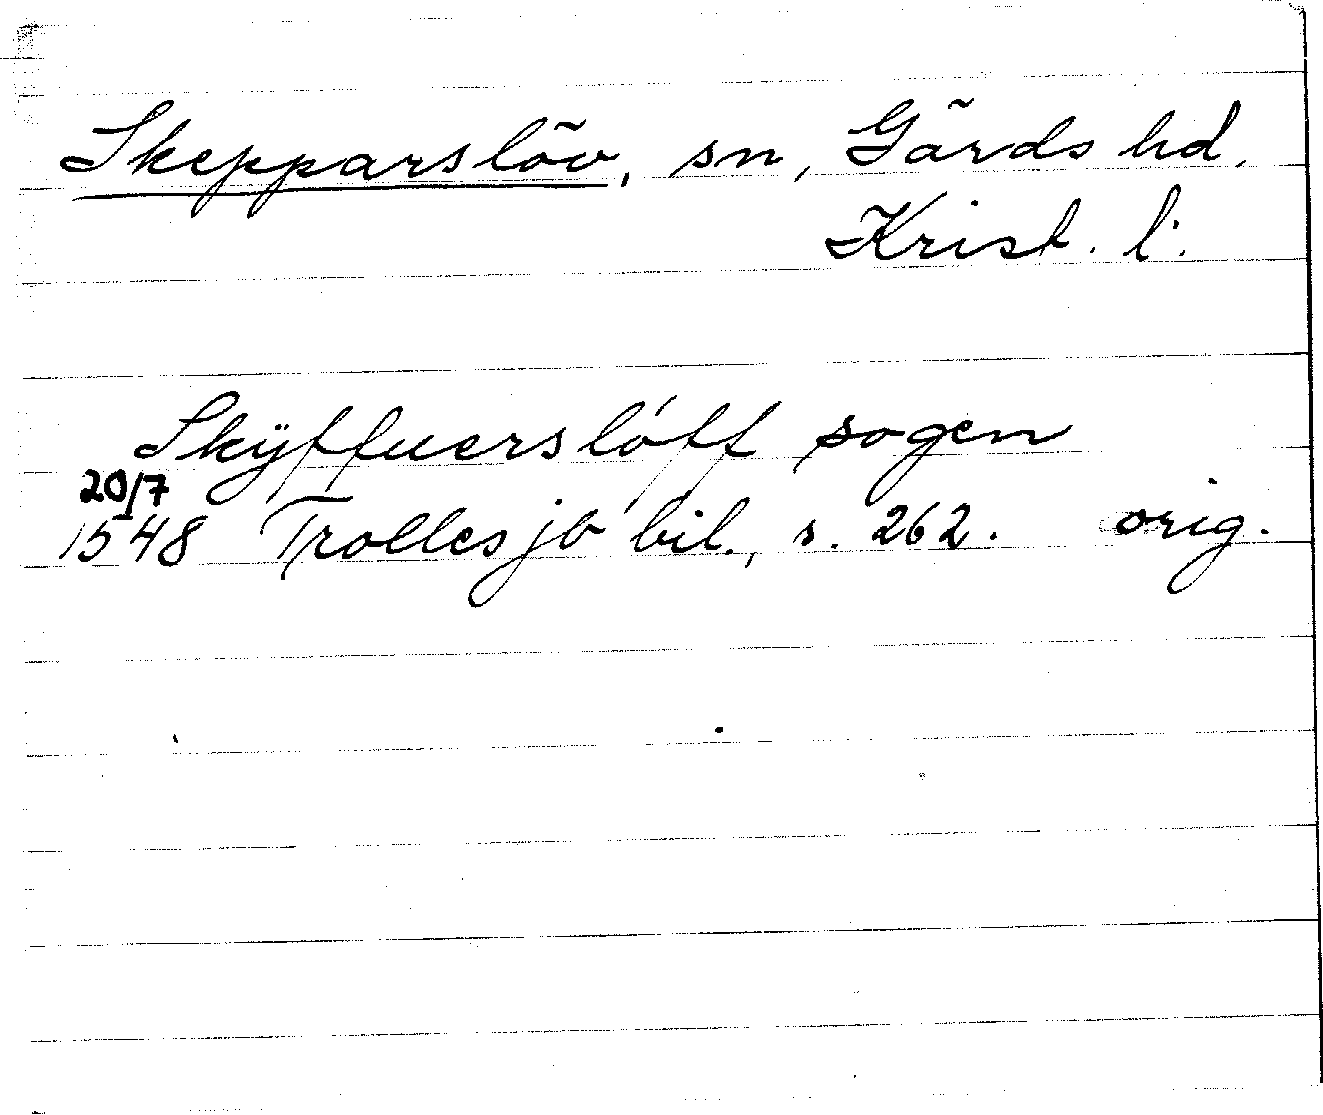 Skepparslöv, sn, Gärds hd.
Krist. l.
Skÿffuerslóff sogen
20/7
1548 Trolles jb bil., s. 262. orig.